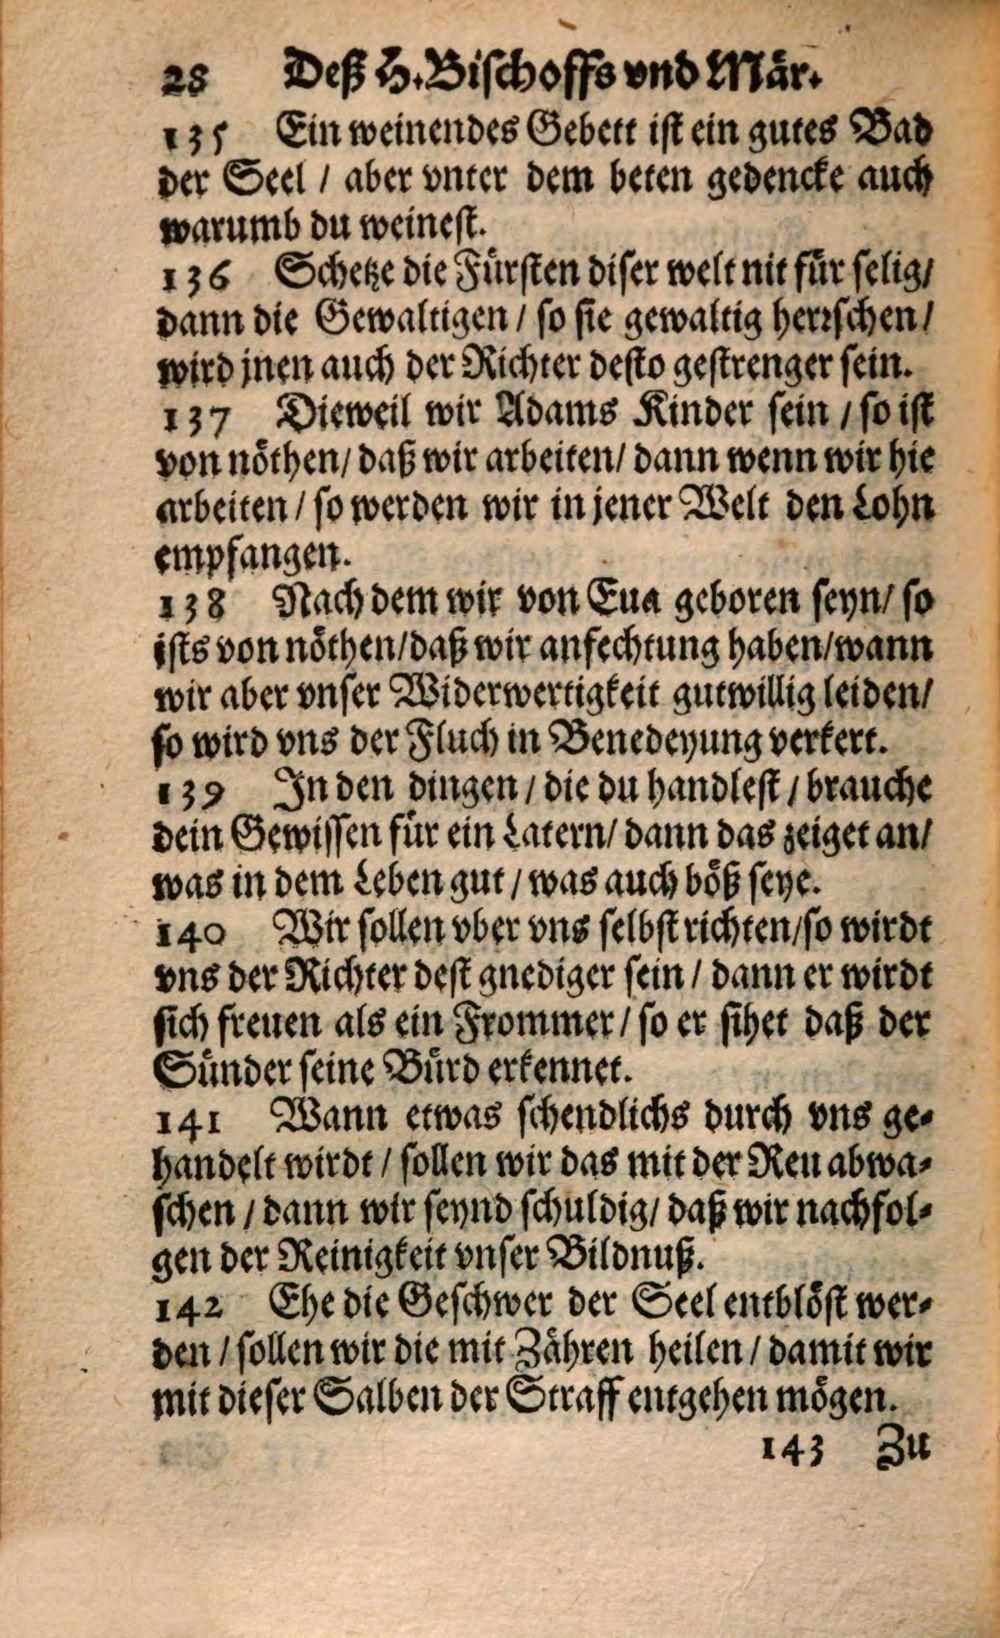 28 Deß H. Bischoffs vnd Mär.
135 Ein weinendes Gebett ist ein gutes Bad
der Seel / aber vnter dem beten gedencke auch
warumb du weinest.
136 Schetze die Fürsten diser welt nit für selig/
dann die Gewaltigen / so sie gewaltig herrschen /
wird jnen auch der Richter desto gestrenger sein.
137 Dieweil wir Adams Kinder sein / so ist
von nöthen/ daß wir arbeiten/ dann wenn wir hie
arbeiten / so werden wir in jener Welt den Lohn
empfangen.
138 Nach dem wir von Eua geboren seyn/ so
ists von nöthen/daß wir anfechtung haben/wann
wir aber vnser Widerwertigkeit gutwillig leiden/
so wird vns der Fluch in Benedeyung verkert.
139 In den dingen / die du handlest / brauche
dein Gewissen für ein Latern/ dann das zeiget an/
was in dem Leben gut / was auch böß seye.
140 Wir sollen vber vns selbst richten/so wirdt
vns der Richter dest gnediger sein / dann er wirdt
sich freuen als ein Frommer / so er sihet daß der
Sünder seine Bürd erkennet.
141 Wann etwas schendlichs durch vns ge-
handelt wirdt / sollen wir das mit der Reu abwa-
schen / dann wir seynd schuldig/ daß wir nachfol-
gen der Reinigkeit vnser Bildnuß.
142 Ehe die Geschwer der Seel entblöst wer-
den / sollen wir die mit Zähren heilen / damit wir
mit dieser Salben der Straff entgehen mögen.
143 Zu